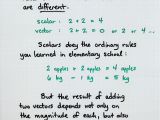 are different.
scalar : 2 + 2 = 4
vector : 2 + 2 = 0 or 2 or 4
Scalars obey the ordinary rules
you learned in elementary school:
2 apples + 2 apples = 4 apples
6 kg - 1 kg = 5 kg
But the result of adding
two vectors depends not only on
the magnitude of each, but also